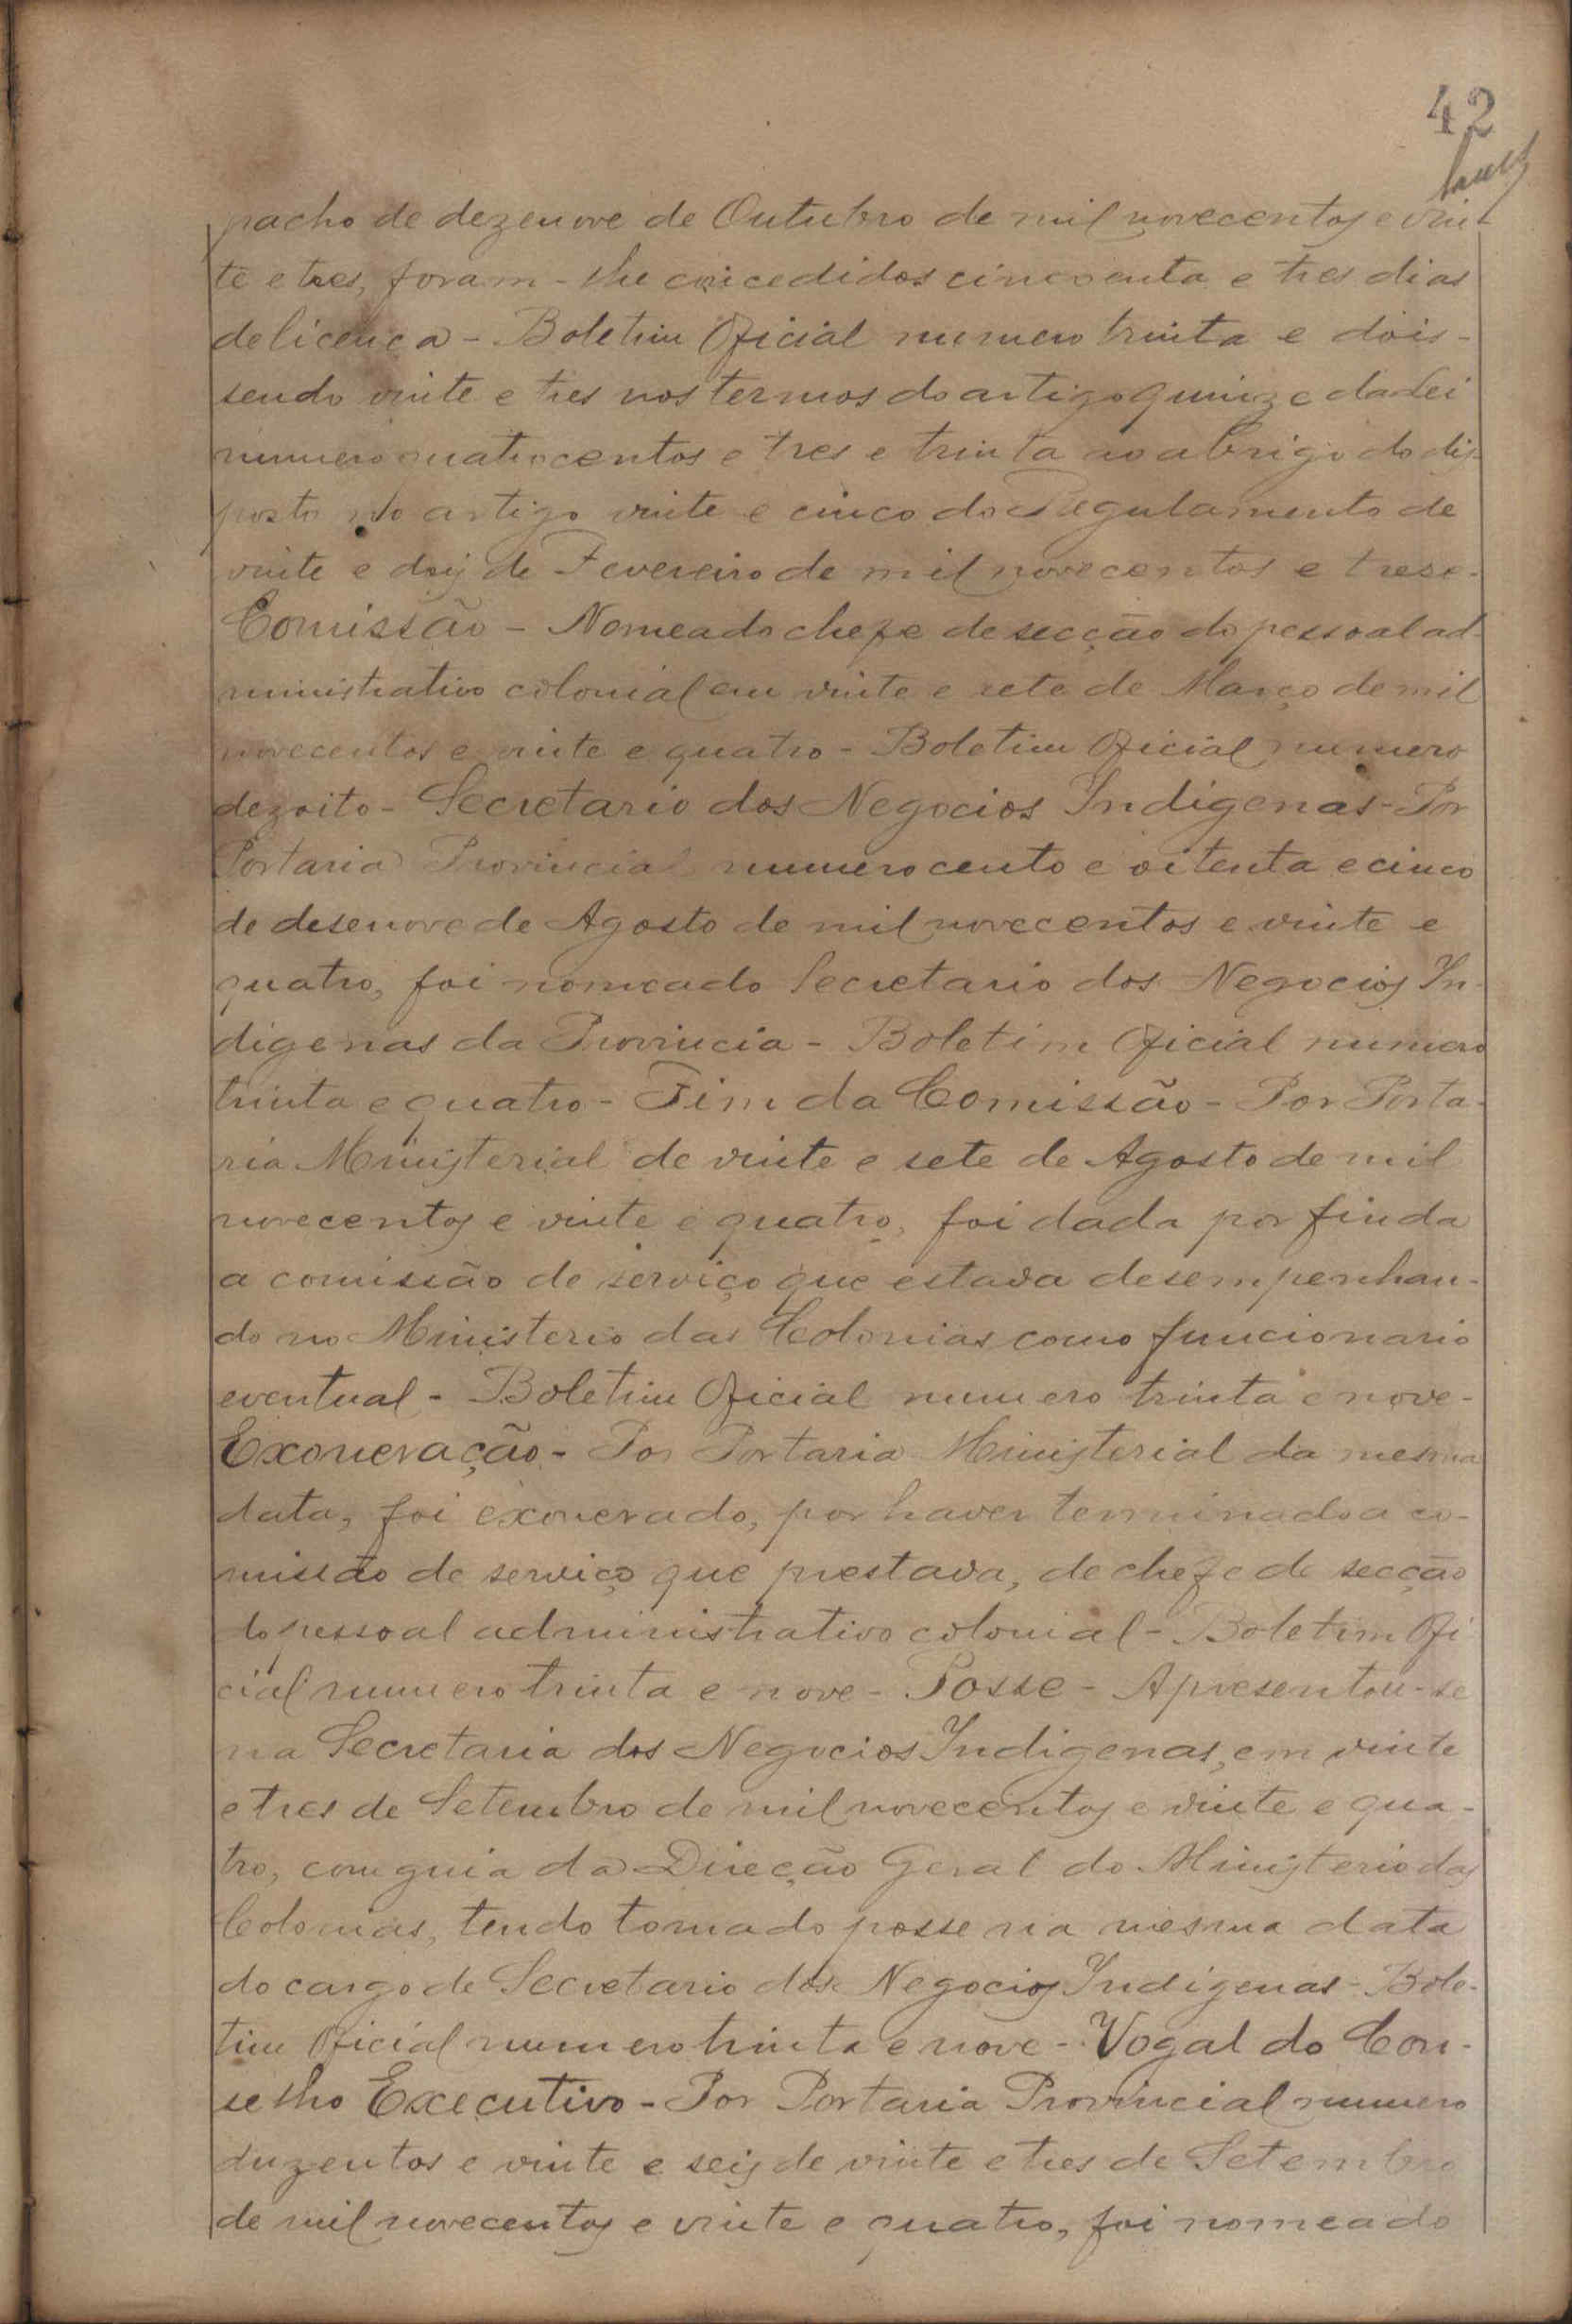 42
pacho de dezenove de Outubro de mil novecentos e vin-
te e tres, foram-lhe concedidos cincoenta e tres dias
de licença - Boletim Oficial numero trinta e dois -
sendo vinte e tres nos termos do artigo quinze da Lei
numero quatrocentos e tres e trinta ao abrigo do dis-
posto no artigo vinte e cinco do Regulamento de
vinte e dois de Fevereiro de mil novecentos e trese -
Comissão - Nomeado chefe de secção do pessoal ad-
ministrativo colonial em vinte e sete de Março de mil
novecentos e vinte e quatro - Boletim Oficial numero
dezoito - Secretario dos Negocios Indigenas - Por
Portaria Provincial numero cento e oitenta e cinco
de desenove de Agosto de mil novecentos e vinte e
quatro, foi nomeado Secretario dos Negocios In-
digenas da Provincia - Boletim Oficial numero
trinta e quatro - Fim da Comissão - Por Porta-
ria Ministerial de vinte e sete de Agosto de mil
novecentos e vinte e quatro, foi dada por finda
a comissão de serviço que estava desempenhan-
do no Ministerio das Colonias como funcionario
eventual - Boletim Oficial numero trinta e nove -
Exoneração - Por Portaria Ministerial da mesma
data, foi exonerado, por haver terminado a co-
missão de serviço que prestava, de chefe de secção
do pessoal administrativo colonial - Boletim Ofi
cial numero trinta e nove - Posse - Apresentou-se
na Secretaria dos Negocios Indigenas, em vinte
e tres de Setembro de mil novecentos e vinte e qua-
tro, com guia da Direcção Geral do Ministerio das
Colonias, tendo tomado posse na mesma data
do cargo de Secretario dos Negocios Indigenas - Bole-
tim Oficial numero trinta e nove - Vogal do Con-
selho Executivo - Por Portaria Provincial numero
duzentos e vinte e seis de vinte e tres de Setembro
de mil novecentos e vinte e quatro, foi nomeado